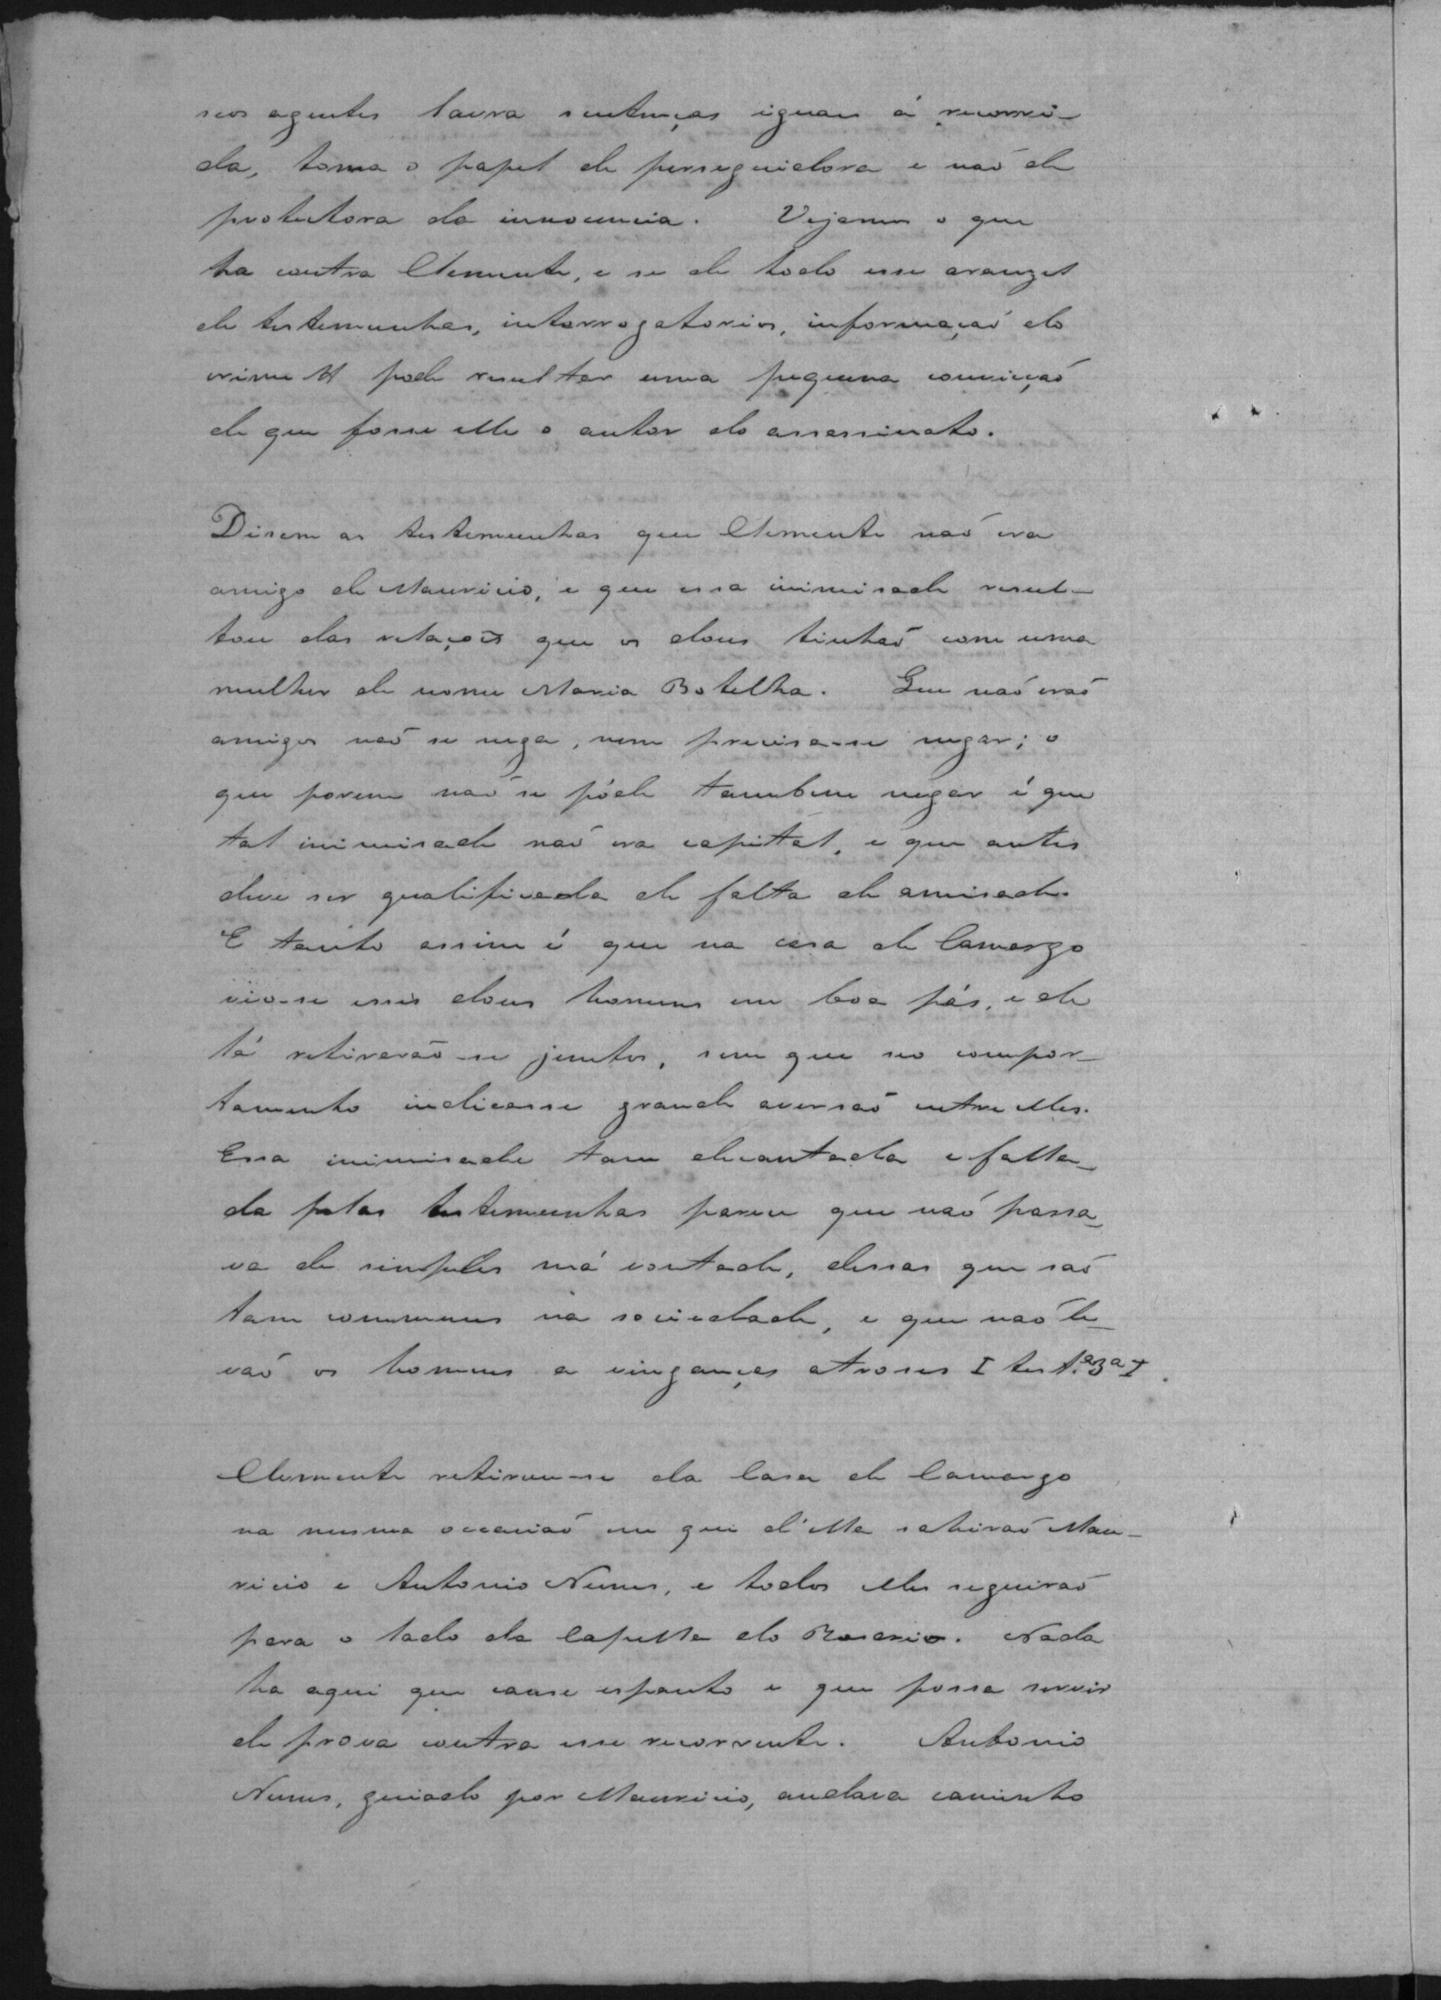 seos agentes lavra sentenças iguaes á recorri-
da, toma o papel de perseguidora e naõ de
protectora da innocencia. Vejamos o que
ha contra Clemente, e se de todo esse aranzel
de testemunhas, interrogatorios, informaçaõ do
crime pode resultar uma pequena convicçaõ
de que fosse elle o autor do assassinato.

Disem as testemunhas que Clemente naõ era
amigo de Mauricio, e que essa inimisade resul-
tou das relaçoẽs que os dous tinhaõ com uma
mulher de nome Maria Botelha. Que naõ eraõ
amigos naõ se nega, nem precisa-se negar; o
que porem naõ se póde tambem negar é que
tal inimisade naõ era capital, e que antes
deve ser qualificada de falta de amisade.
E tanto assim é que na casa de Camargo
vio-se esses dous homens em boa pás, e de
lá retiraraõ-se juntos, sem que seo compor-
tamento indicasse grande aversaõ entre elles.
Essa inimisade tam decantada e falla-
da pelas testemunhas parece que naõ passa-
va de simples má vontade, dessas que saõ
tam communs na sociedade, e que naõ le-
vaõ os homens a vinganças atroses I test.ª 3ª I.

Clemente retirou-se da casa de Camargo
na mesma occasiaõ em que d'ella sahiraõ Mau-
ricio e Antonio Nunes, e todos elles seguiraõ
para o lado da Capella do Rosario. Nada
ha aqui que cause espanto e que possa servir
de prova contra esse recorrente. Antonio
Nunes, guiado por Mauricio, andava caminho